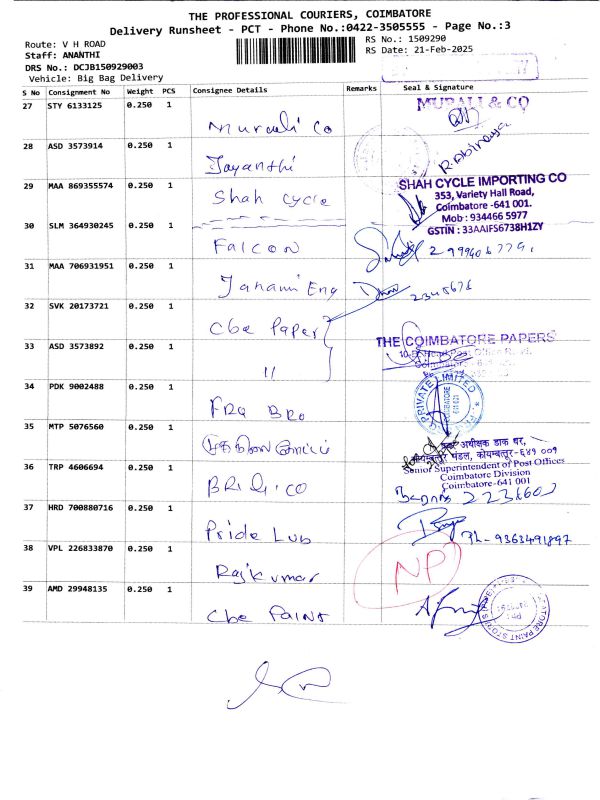 THE PROFESSIONAL COURIERS, COIMBATORE
Delivery Runsheet - PCT - Phone No.:0422-3505555 - Page No.:3
Route: V H ROAD
RS No.: 1509290
Staff: ANANTHI
RS Date: 21-Feb-2025
DRS No.: DCJB150929003
Vehicle: Big Bag Delivery
S No Consignment No Weight PCS Consignee Details Remarks Seal & Signature
27 STY 6133125 0.250 1 Murali Co MURALI & CO
28 ASD 3573914 0.250 1 Jayanthi R. Abinaya
29 MAA 869355574 0.250 1 Shah cycle
SHAH CYCLE IMPORTING CO
353, Variety Hall Road,
Coimbatore - 641 001.
Mob : 934466 5977
GSTIN : 33AAIFS6738H1ZY
30 SLM 364930245 0.250 1 Falcon
31 MAA 706931951 0.250 1 Janami Eng
32 SVK 20173721 0.250 1 Cbe Paper
33 ASD 3573892 0.250 1 11
THE COIMBATORE PAPERS
34 PDK 9002488 0.250 1 FRA BRO
PRIVATE LIMITED
COIMBATORE
641 001
35 MTP 5076560 0.250 1
अधीक्षक डाक घर,
मंडल, कोयम्बतूर-६४१ ००१
Senior Superintendent of Post Offices
Coimbatore Division
Coimbatore-641 001
36 TRP 4606694 0.250 1 BRIGICO
37 HRD 700880716 0.250 1 Pride Lub Ph - 9363491897
38 VPL 226833870 0.250 1 Rajkumar NP
39 AMD 29948135 0.250 1 Cbe Paint